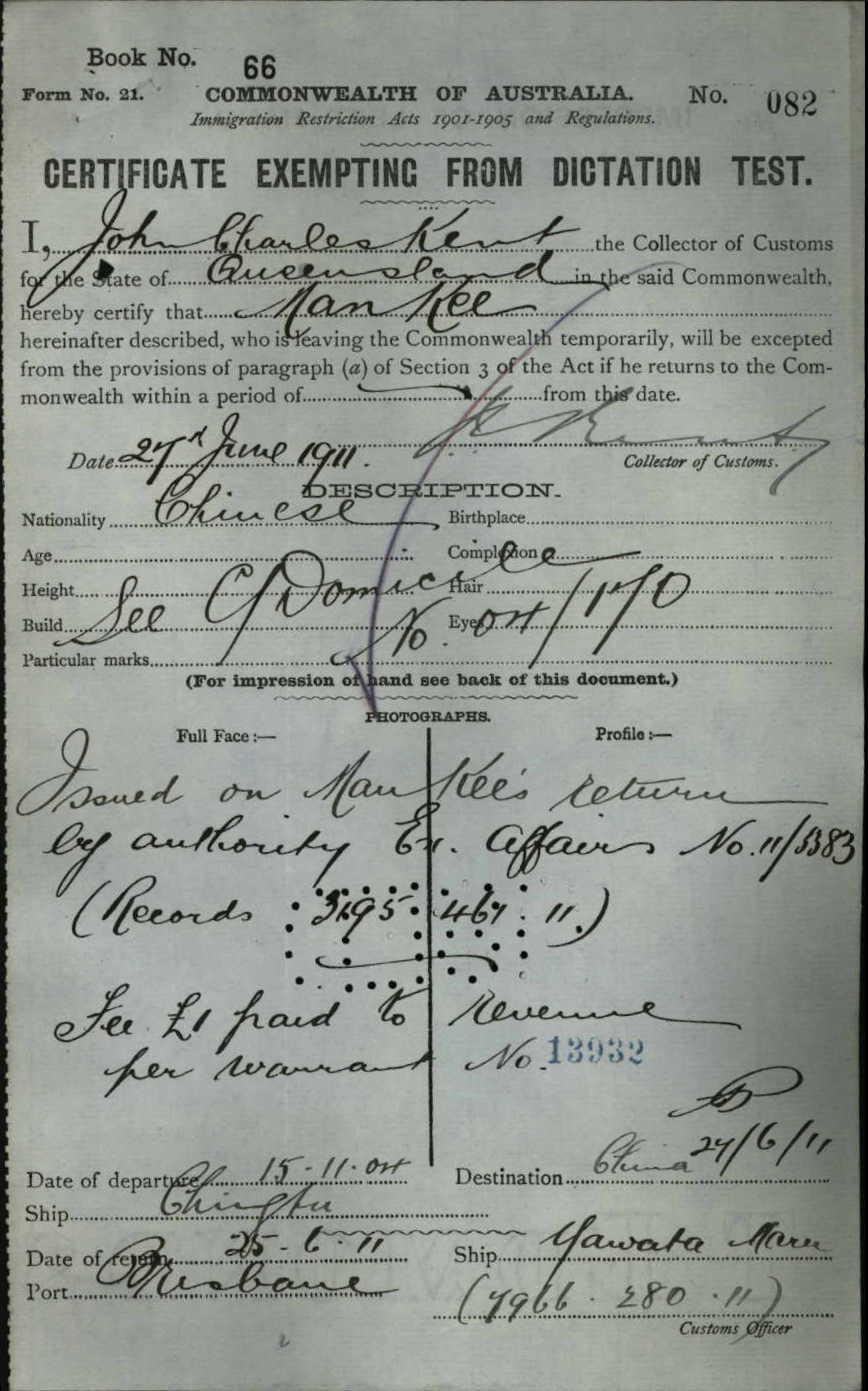 Book No. 66
Form No. 21. COMMONWEALTH OF AUSTRALIA. No. 082
Immigration Restriction Acts 1901-1905 and Regulations.
CERTIFICATE EXEMPTING FROM DICTATION TEST.
I, John Charles Kent the Collector of Customs
for the State of Queensland in the said Commonwealth,
hereby certify that Man Kee
hereinafter described, who is leaving the Commonwealth temporarily, will be excepted
from the provisions of paragraph (a) of Section 3 of the Act if he returns to the Com-
monwealth within a period of from this date.
Date 27th June 1911. Kent
Collector of Customs.
DESCRIPTION.
Nationality Chinese Birthplace
Age Complexion
Height Hair
Build Eyes
See C/Domicile No. 04/170
Particular marks
(For impression of hand see back of this document.)
PHOTOGRAPHS.
Full Face:— Profile:—
Issued on Man Kee's return
by authority Ex. Affairs No. 11/5383
(Records 3195 467. 11.)
Fee £1 paid to Revenue
per warrant No. 13932
27/6/11
Date of departure 15-11-04 Destination China
Ship Chingtu
Date of return 25-6-11 Ship Yawata Maru
Port Brisbane (7966 . 280 . 11)
Customs Officer